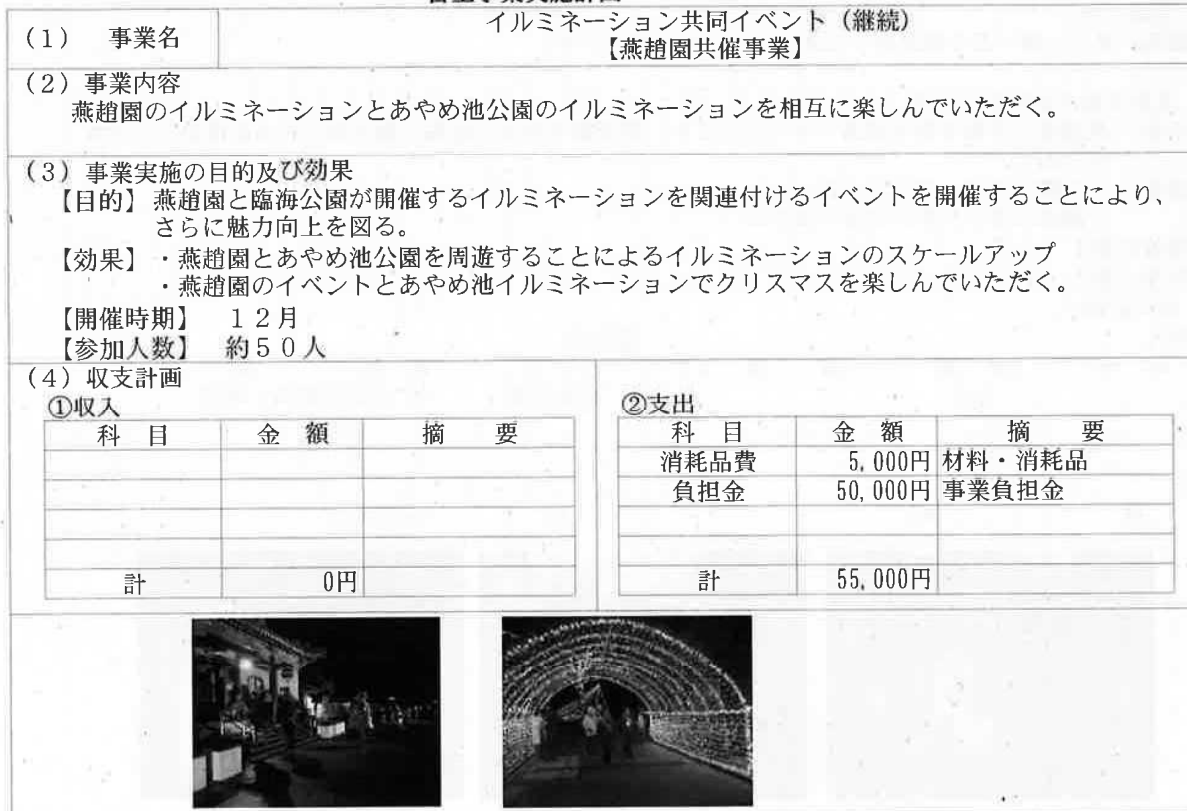 (1) 事業名
イルミネーション共同イベント(継続)
【燕趙園共催事業】
(2)事業内容
燕趙園のイルミネーションとあやめ池公園のイルミネーションを相互に楽しんでいただく。
(3)事業実施の目的及び効果
【目的】燕趙園と臨海公園が開催するイルミネーションを関連付けるイベントを開催することにより、
さらに魅力向上を図る。
【効果】・燕趙園とあやめ池公園を周遊することによるイルミネーションのスケールアップ
・燕趙園のイベントとあやめ池イルミネーションでクリスマスを楽しんでいただく。
【開催時期】 12月
【参加人数】 約50人
(4)収支計画
①収入
科 目 金 額 摘 要
計 0円
②支出
科 目 金 額 摘 要
消耗品費 5,000円 材料・消耗品
負担金 50,000円 事業負担金
計 55,000円